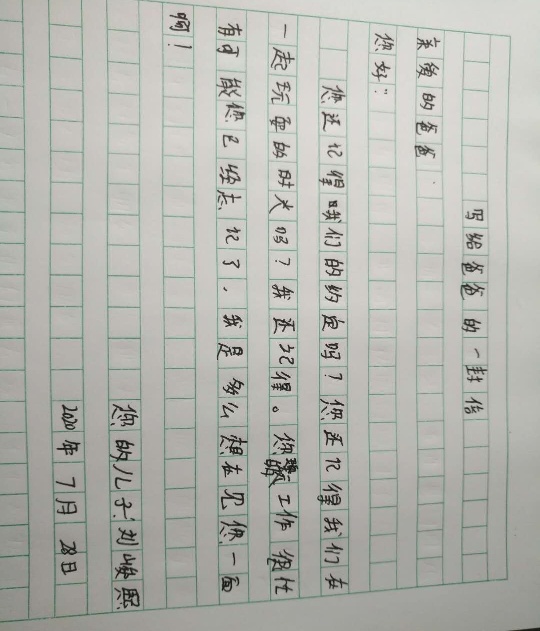 写给爸爸的一封信
亲爱的爸爸：
您好：
您还记得我们的约定吗？您还记得我们在
一起玩耍的时光吗？我还记得。您工作很忙
有可能您已经忘记了，我是多么想在见您一面
啊！
您的儿子：刘峻熙
2020年7月28日